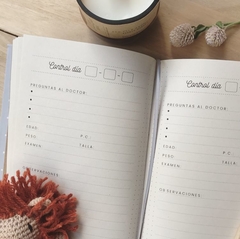 Control día
PREGUNTAS AL DOCTOR:
EDAD:
PESO:
P.C.:
EXAMEN:
TALLA:
OBSERVACIONES:
Control día
PREGUNTAS AL DOCTOR:
EDAD:
PESO:
P.C.:
EXAMEN:
TALLA:
OBSERVACIONES: